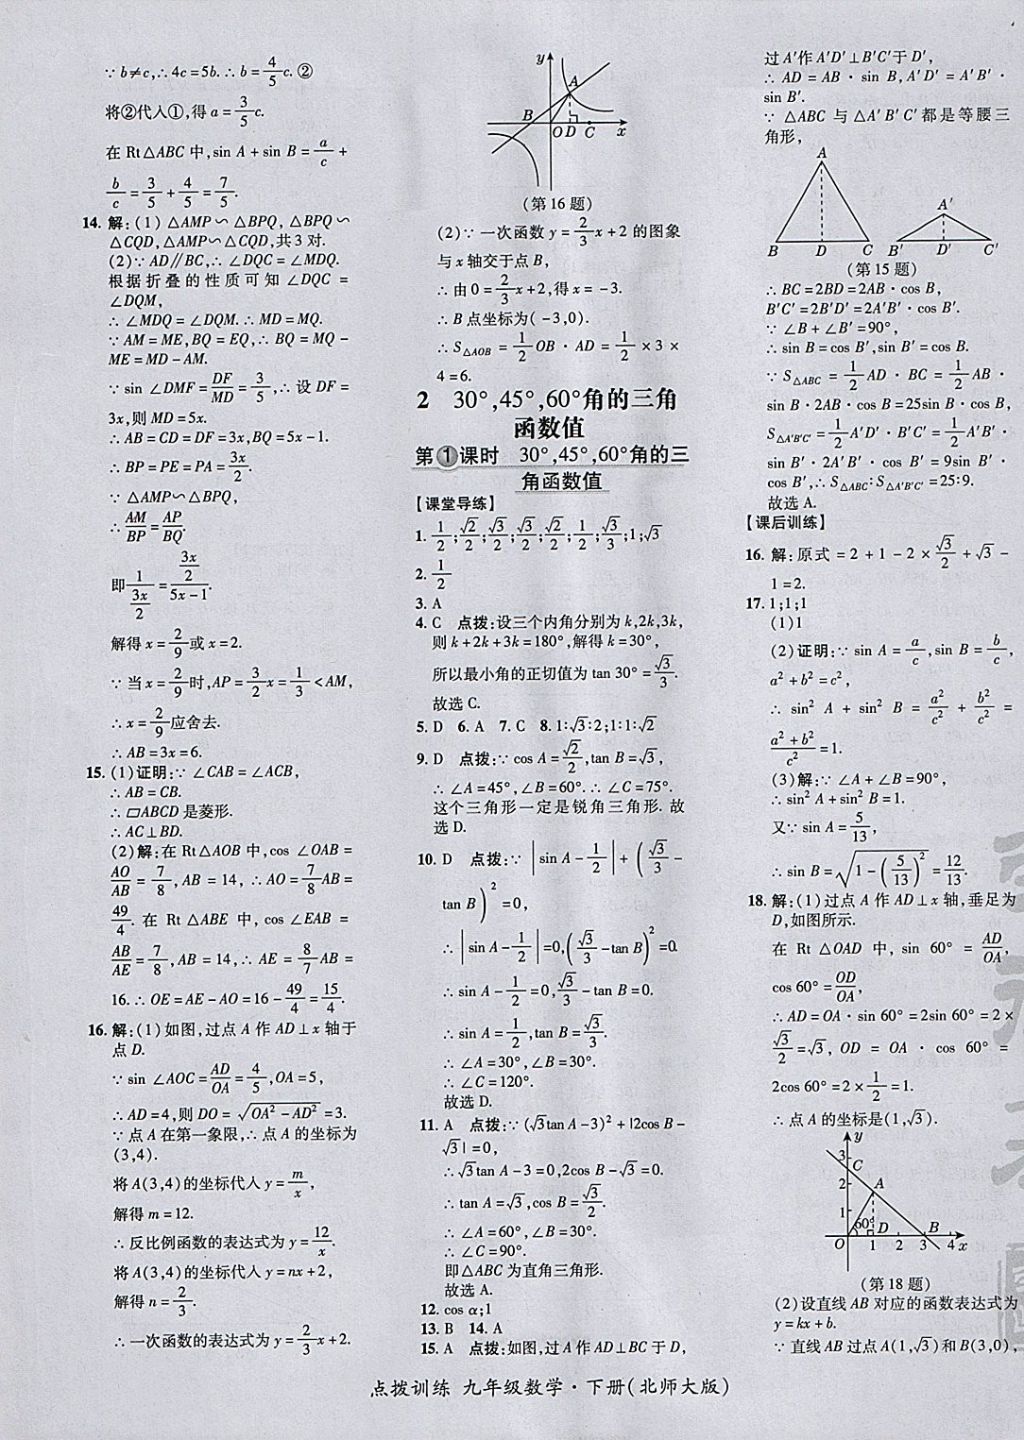 ∵b≠c,∴4c=5b.∴b=4/5c.②
将②代入①,得a=3/5c.
在Rt△ABC中,sin A+sin B=a/c+
b/c=3/5+4/5=7/5.
14.解:(1)△AMP∽△BPQ,△BPQ∽
△CQD,△AMP∽△CQD,共3对.
(2)∵AD∥BC,∴∠DQC=∠MDQ.
根据折叠的性质可知∠DQC=
∠DQM,
∴∠MDQ=∠DQM.∴MD=MQ.
∵AM=ME,BQ=EQ,∴BQ=MQ-
ME=MD-AM.
∵sin∠DMF=DF/MD=3/5,∴设DF=
3x,则MD=5x.
∴AB=CD=DF=3x,BQ=5x-1.
∴BP=PE=PA=3x/2.
∵△AMP∽△BPQ,
∴AM/BP=AP/BQ.
即1/(3x/2)=(3x/2)/(5x-1).
解得x=2/9或x=2.
∵当x=2/9时,AP=3/2x=1/3<AM,
∴x=2/9应舍去.
∴AB=3x=6.
15.(1)证明:∵∠CAB=∠ACB,
∴AB=CB.
∴▱ABCD是菱形.
∴AC⊥BD.
(2)解:在Rt△AOB中,cos∠OAB=
AO/AB=7/8,AB=14,∴AO=7/8AB=
49/4.在Rt△ABE中,cos∠EAB=
AB/AE=7/8,AB=14,∴AE=8/7AB=
16.∴OE=AE-AO=16-49/4=15/4.
16.解:(1)如图,过点A作AD⊥x轴于
点D.
∵sin∠AOC=AD/OA=4/5,OA=5,
∴AD=4,则DO=√(OA²-AD²)=3.
∵点A在第一象限,∴点A的坐标为
(3,4).
将A(3,4)的坐标代人y=m/x,
解得m=12.
∴反比例函数的表达式为y=12/x.
将A(3,4)的坐标代人y=nx+2,
解得n=2/3.
∴一次函数的表达式为y=2/3x+2.
y
A
B
O D C x
(第16题)
(2)∵一次函数y=2/3x+2的图象
与x轴交于点B,
∴由0=2/3x+2,得x=-3.
∴B点坐标为(-3,0).
∴S△AOB=1/2OB·AD=1/2×3×
4=6.
2 30°,45°,60°角的三角
函数值
第1课时 30°,45°,60°角的三
角函数值
【课堂导练】
1.1/2;√2/2;√3/2;√3/2;√2/2;1/2;√3/3;1;√3
2.1/2
3.A
4.C 点拨:设三个内角分别为k,2k,3k,
则k+2k+3k=180°,解得k=30°,
所以最小角的正切值为tan 30°=√3/3.
故选C.
5.D 6.A 7.C 8.1∶√3∶2;1∶1∶√2
9.D 点拨:∵cos A=√2/2,tan B=√3,
∴∠A=45°,∠B=60°.∴∠C=75°.
这个三角形一定是锐角三角形.故
选D.
10.D 点拨:∵|sin A-1/2|+(√3/3-
tan B)²=0,
∴|sin A-1/2|=0,(√3/3-tan B)²=0.
∴sin A-1/2=0,√3/3-tan B=0.
∴sin A=1/2,tan B=√3/3.
∴∠A=30°,∠B=30°.
∴∠C=120°.
故选D.
11.A 点拨:∵(√3tan A-3)²+|2cos B-
√3|=0,
∴√3tan A-3=0,2cos B-√3=0.
∴tan A=√3,cos B=√3/2.
∴∠A=60°,∠B=30°.
∴∠C=90°.
即△ABC为直角三角形.
故选A.
12.cos α;1
13.B 14.A
15.A 点拨:如图,过A作AD⊥BC于D,
过A′作A′D′⊥B′C′于D′,
∴AD=AB·sin B,A′D′=A′B′·
sin B′.
∵△ABC与△A′B′C′都是等腰三
角形,
A
B D C
A′
B′ D′ C′
(第15题)
∴BC=2BD=2AB·cos B,
B′C′=2B′D′=2A′B′·cos B′.
∵∠B+∠B′=90°,
∴sin B=cos B′,sin B′=cos B.
∵S△ABC=1/2AD·BC=1/2AB·
sin B·2AB·cos B=25sin B·cos B,
S△A′B′C′=1/2A′D′·B′C′=1/2A′B′·
sin B′·2A′B′·cos B′=9sin B′·
cos B′,∴S△ABC∶S△A′B′C′=25∶9.
故选A.
【课后训练】
16.解:原式=2+1-2×√3/2+√3-
1=2.
17.1;1;1
(1)1
(2)证明:∵sin A=a/c,sin B=b/c,
a²+b²=c²,
∴sin² A+sin² B=a²/c²+b²/c²=
(a²+b²)/c²=1.
(3)解:∵∠A+∠B=90°,
∴sin² A+sin² B=1.
又∵sin A=5/13,
∴sin B=√(1-(5/13)²)=12/13.
18.解:(1)过点A作AD⊥x轴,垂足为
D,如图所示.
在Rt△OAD中,sin 60°=AD/OA,
cos 60°=OD/OA,
∴AD=OA·sin 60°=2sin 60°=2×
√3/2=√3,OD=OA·cos 60°=
2cos 60°=2×1/2=1.
∴点A的坐标是(1,√3).
y
3 C
2 A
1
60° D B
O 1 2 3 4 x
(第18题)
(2)设直线AB对应的函数表达式为
y=kx+b.
∵直线AB过点A(1,√3)和B(3,0),
点拨训练 九年级数学·下册(北师大版)